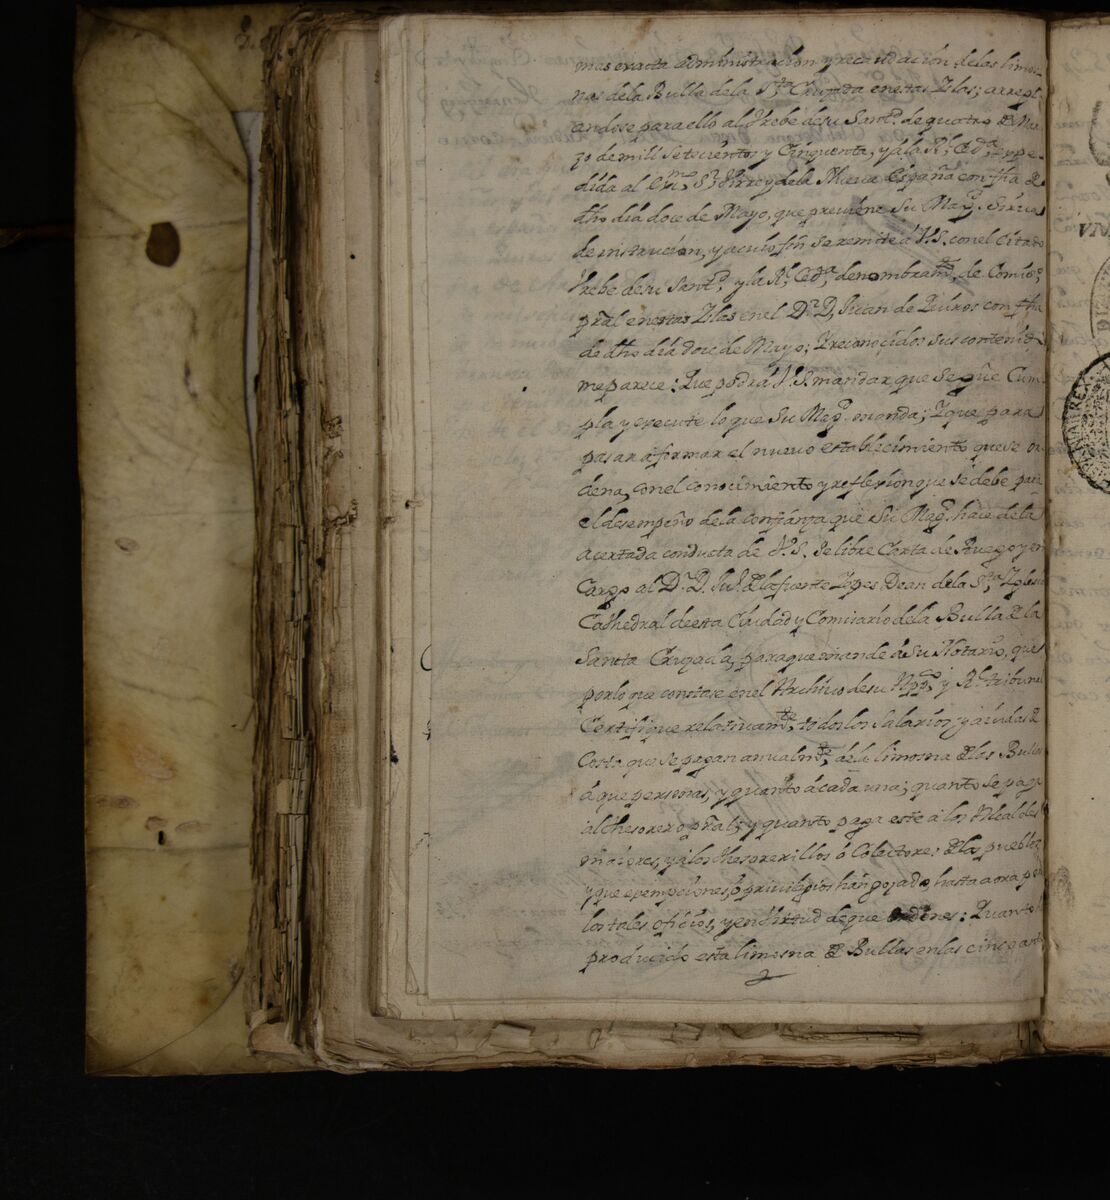 mas exacta administracion y recaudacion de las limos-
nas de la Bulla de la Sta. Cruzada en estas Yslas; arregl-
andose para ello al Brebe de su Santd. de quatro de Mar-
zo de mill setecientos y Cinquenta, y á la Rl. Ceda. expe-
dida al Exmo. Sr. Virrey de la Nueva España con fha de
dho dia doce de Mayo, que previene Su Magd. Sirva
de instruccion, y a cuio fin se remite á V.S. con el Citado
Brebe de su Santd. y la Rl. Ceda. de nombramto. de Comisso.
pral en estas Yslas en el Dr. Dn. Juan de con fha
de dho dia doce de Mayo; Y reconocidos sus contenid
me parece: Que podrá V.S. mandar que se gde. Cum-
pla y execute lo que Su Magd. manda; Y que para
pasar a formar el nuevo establecimiento que se or-
dena, con el conocimiento y reflexion que se debe para
el desempeño de la confianza que Su Magd. hace de la
acertada conducta de V.S. Se libre Carta de Ruego y en
Cargo al Dr. D. Juo. de la fuente Yepes Dean de la Sta. Yglesia
Cathedral de esta Ciudad y Comisario de la Bulla de la
Santta Cruzada, para que mande á su Notario, que
por lo que constase en el Archivo de su y Rl. tribunal
Certifique relativamte. todos los Salarios, y aiudas de
Costa que se pagan anualmte. de la limosna de las Bullas
á que personas, y quanto á cada una; quanto se paga
al thesorero pral; y quanto paga este á los Alcaldes
maiores, y á los thesorerillos ó Colectores de los pueblos
y que exempciones, ó privilegios han gozado hasta aora por
los tales oficios, y en virtud de que ordenes: Quanto ha
producido esta limosna de Bullas en las cinco ant